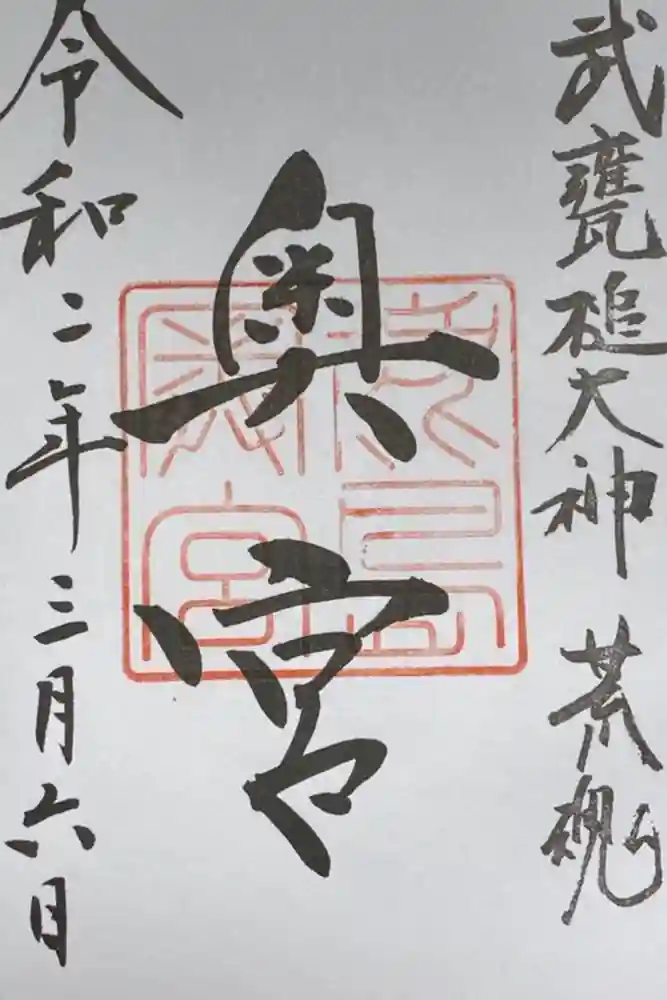 武甕槌大神 荒魂
奥宮
鹿島奥宮
令和二年三月六日